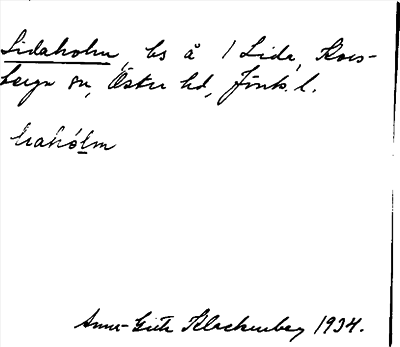 Lidaholm, bs å 1 Lida, Kors-
berga sn, Östra hd, Jönk. l.
liahólm
Anna-Greta Klackenberg 1934.